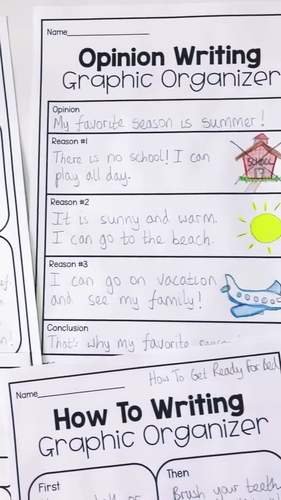 Name
Opinion Writing
Graphic Organizer
Opinion
My favorite season is summer!
Reason #1
There is no school! I can
play all day.
SCHOOL
Reason #2
It is sunny and warm.
I can go to the beach.
Reason #3
I can go on vacation
and see my family!
Conclusion
That's why my favorite
How To Get Ready For Bed
Name
How To Writing
Graphic Organizer
First
Then
Brush your teeth